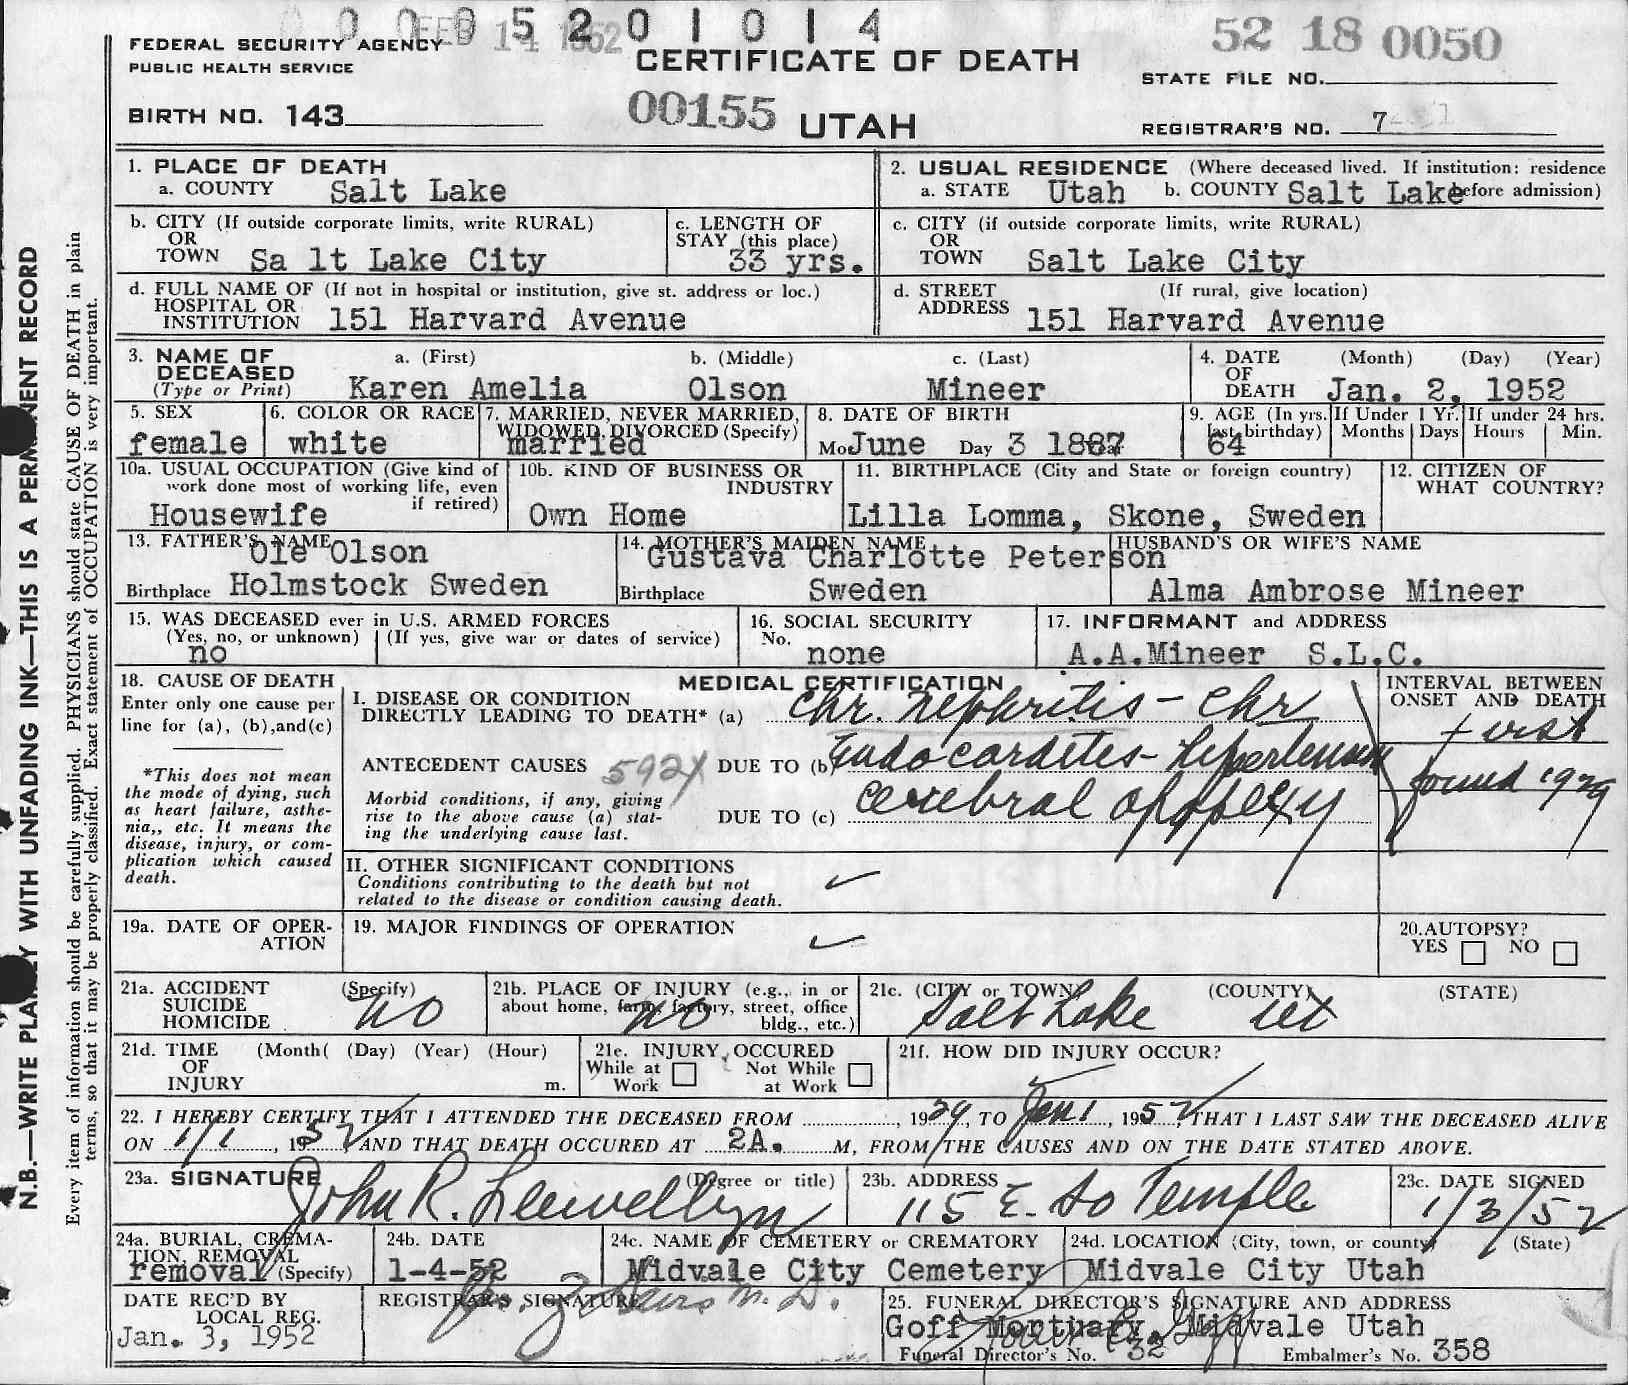 00 0 8 5 2 0 1 0 1 4
FEB 14 1952
52 18 0050
FEDERAL SECURITY AGENCY
PUBLIC HEALTH SERVICE
CERTIFICATE OF DEATH
STATE FILE NO.
BIRTH NO. 143
00155 UTAH
REGISTRAR'S NO. 7
N.B.—WRITE PLAINLY WITH UNFADING INK—THIS IS A PERMANENT RECORD
Every item of information should be carefully supplied. PHYSICIANS should state CAUSE OF DEATH in plain
terms, so that it may be properly classified. Exact statement of OCCUPATION is very important.
1. PLACE OF DEATH
a. COUNTY Salt Lake
2. USUAL RESIDENCE (Where deceased lived. If institution: residence
a. STATE Utah b. COUNTY Salt Lake before admission)
b. CITY (If outside corporate limits, write RURAL)
OR
TOWN Sa lt Lake City
c. LENGTH OF
STAY (this place)
33 yrs.
c. CITY (if outside corporate limits, write RURAL)
OR
TOWN Salt Lake City
d. FULL NAME OF (If not in hospital or institution, give st. address or loc.)
HOSPITAL OR
INSTITUTION 151 Harvard Avenue
d. STREET (If rural, give location)
ADDRESS 151 Harvard Avenue
3. NAME OF a. (First) b. (Middle) c. (Last)
DECEASED
(Type or Print) Karen Amelia Olson Mineer
4. DATE (Month) (Day) (Year)
OF
DEATH Jan. 2, 1952
5. SEX
female
6. COLOR OR RACE
white
7. MARRIED, NEVER MARRIED,
WIDOWED, DIVORCED (Specify)
married
8. DATE OF BIRTH
Mo. June Day 3 1887
9. AGE (In yrs.
last birthday)
64
If Under 1 Yr.
Months Days
If under 24 hrs.
Hours Min.
10a. USUAL OCCUPATION (Give kind of
work done most of working life, even
if retired)
Housewife
10b. KIND OF BUSINESS OR
INDUSTRY
Own Home
11. BIRTHPLACE (City and State or foreign country)
Lilla Lomma, Skone, Sweden
12. CITIZEN OF
WHAT COUNTRY?
13. FATHER'S NAME
Ole Olson
Birthplace Holmstock Sweden
14. MOTHER'S MAIDEN NAME
Gustava Charlotte Peterson
Birthplace Sweden
HUSBAND'S OR WIFE'S NAME
Alma Ambrose Mineer
15. WAS DECEASED ever in U.S. ARMED FORCES
(Yes, no, or unknown) (If yes, give war or dates of service)
no
16. SOCIAL SECURITY
No.
none
17. INFORMANT and ADDRESS
A.A.Mineer S.L.C.
18. CAUSE OF DEATH
Enter only one cause per
line for (a), (b),and(c)
*This does not mean
the mode of dying, such
as heart failure, asthe-
nia,, etc. It means the
disease, injury, or com-
plication which caused
death.
MEDICAL CERTIFICATION
I. DISEASE OR CONDITION
DIRECTLY LEADING TO DEATH* (a) Chr. Nephritis - Chr
ANTECEDENT CAUSES 592X DUE TO (b) Endocardites - Hypertension
Morbid conditions, if any, giving
rise to the above cause (a) stat-
ing the underlying cause last.
DUE TO (c) Cerebral apoplexy
INTERVAL BETWEEN
ONSET AND DEATH
first
found 1929
II. OTHER SIGNIFICANT CONDITIONS
Conditions contributing to the death but not
related to the disease or condition causing death.
19a. DATE OF OPER-
ATION
19. MAJOR FINDINGS OF OPERATION
20.AUTOPSY?
YES NO
21a. ACCIDENT (Specify)
SUICIDE
HOMICIDE no
21b. PLACE OF INJURY (e.g., in or
about home, farm, factory, street, office
bldg., etc.)
no
21c. (CITY or TOWN) (COUNTY) (STATE)
Salt Lake Ut
21d. TIME (Month( (Day) (Year) (Hour)
OF
INJURY m.
21e. INJURY OCCURED
While at Not While
Work at Work
21f. HOW DID INJURY OCCUR?
22. I HEREBY CERTIFY THAT I ATTENDED THE DECEASED FROM , 1929, TO Jan 1, 1952, THAT I LAST SAW THE DECEASED ALIVE
ON 1/1, 1952 AND THAT DEATH OCCURED AT 2A. M, FROM THE CAUSES AND ON THE DATE STATED ABOVE.
23a. SIGNATURE (Degree or title)
John R. Llewellyn
23b. ADDRESS
115 E. So Temple
23c. DATE SIGNED
1/3/52
24a. BURIAL, CREMA-
TION, REMOVAL
removal (Specify)
24b. DATE
1-4-52
24c. NAME OF CEMETERY or CREMATORY
Midvale City Cemetery
24d. LOCATION (City, town, or county) (State)
Midvale City Utah
DATE REC'D BY
LOCAL REG.
Jan. 3, 1952
REGISTRAR'S SIGNATURE
M.D.
25. FUNERAL DIRECTOR'S SIGNATURE AND ADDRESS
Goff Mortuary, Midvale Utah
Funeral Director's No. 32 Embalmer's No. 358